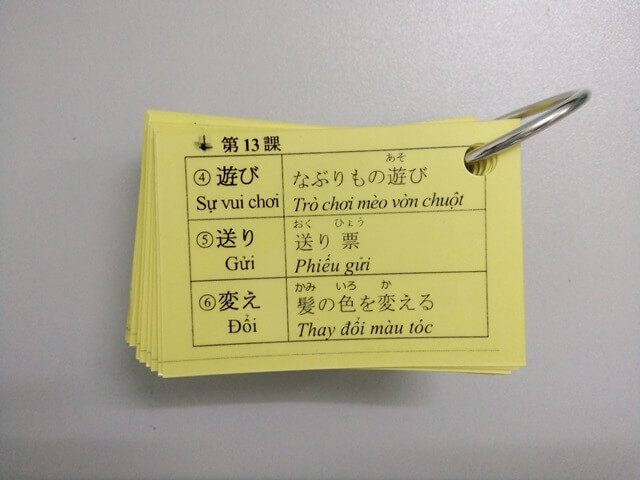 第13課
④遊び
Sự vui chơi
あそ
なぶりもの遊び
Trò chơi mèo vờn chuột
⑤送り
Gửi
おく ひょう
送り票
Phiếu gửi
⑥変え
Đổi
かみ いろ か
髪の色を変える
Thay đổi màu tóc